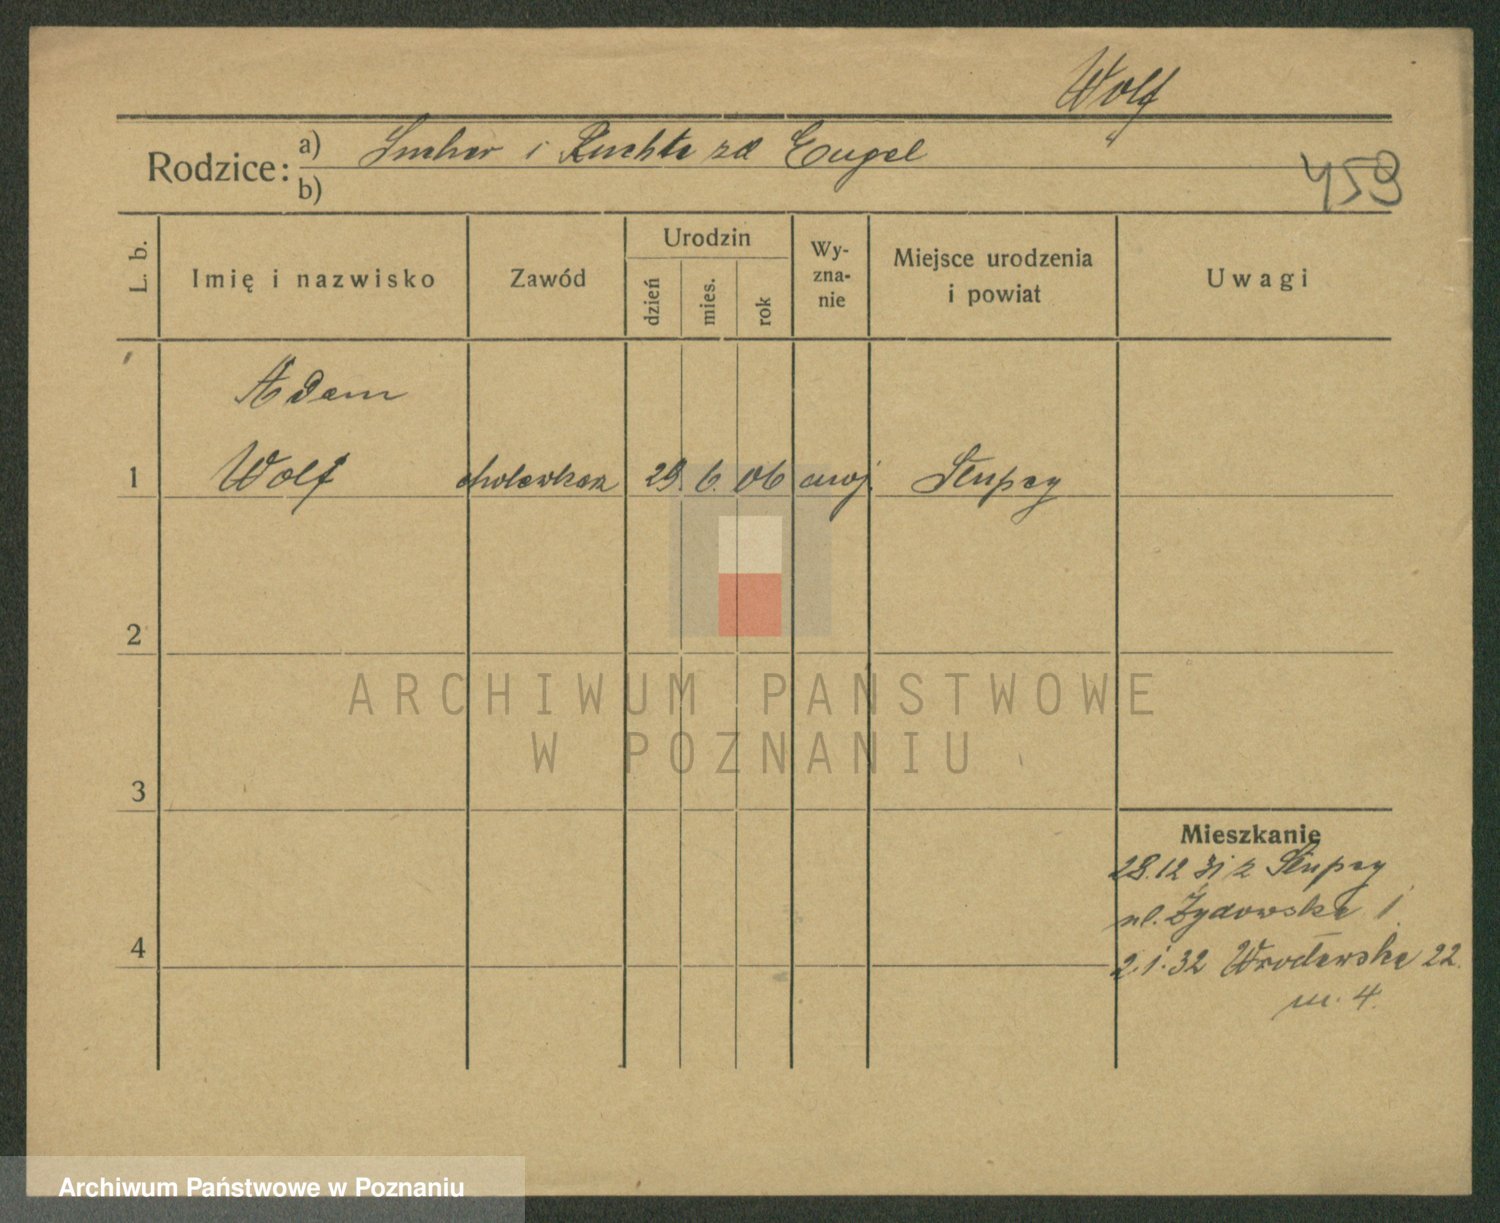 Wolf
Rodzice: a) i Ruchla zd Engel
b)
459
L. b.
Imię i nazwisko
Zawód
Urodzin
dzień
mies.
rok
Wy-
zna-
nie
Miejsce urodzenia
i powiat
Uwagi
Adam
1 Wolf cholewkarz 29. 6. 06 mojż. Słupcy
2
3
4
Mieszkanie
28.12 31 z Słupcy
ul. Żydowska 1
2.1.32 Wrocławska 22.
m. 4.
ARCHIWUM PAŃSTWOWE
W POZNANIU
Archiwum Państwowe w Poznaniu